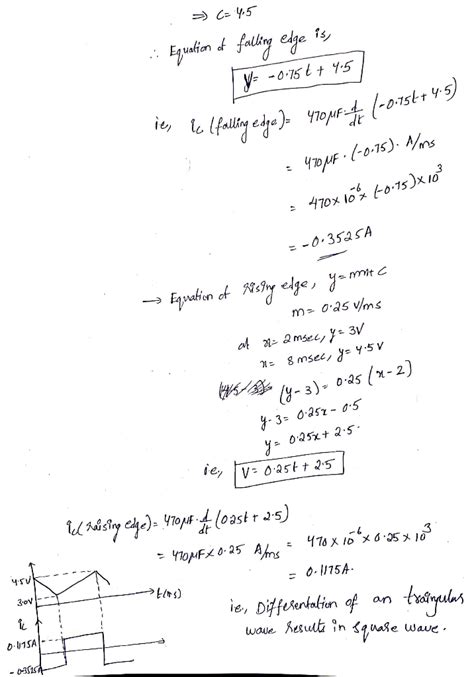 ⇒ C= 4.5
∴ Equation of falling edge is,
V= -0.75t + 4.5
ie, ic (falling edge)= 470μF d/dt (-0.75t + 4.5)
= 470μF · (-0.75) · A/ms
= 470×10⁻⁶× (-0.75)×10³
= -0.3525A
→ Equation of rising edge, y=mx+c
m= 0.25 V/ms
at x= 2msec, y= 3V
x= 8msec, y= 4.5V
(y-3)= 0.25 (x-2)
y-3= 0.25x - 0.5
y= 0.25x + 2.5.
ie, V= 0.25t + 2.5
ic (raising edge)= 470μF·d/dt (0.25t + 2.5)
= 470μF×0.25 A/ms = 470×10⁻⁶×0.25×10³
= 0.1175A.
ie, Differentation of an traingular
wave results in square wave.
4.5V
3.0V
t(ms)
ic
0.1175A
-0.3525A